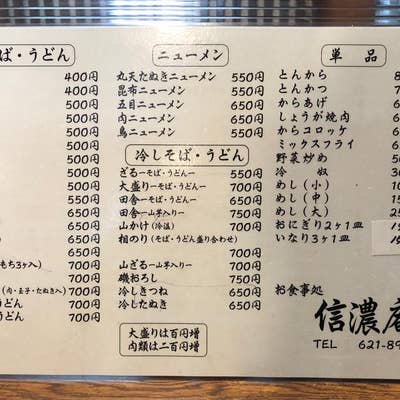 ば・うどん
400円
400円
500円
500円
500円
500円
550円
550円
650円
650円
650円
650円
もち3ヶ入) 700円
700円
(肉・玉子・たぬき入) 700円
うどん 700円
どん 700円
ニューメン
丸天たぬきニューメン 550円
昆布ニューメン 550円
五目ニューメン 650円
肉ニューメン 650円
鳥ニューメン 650円
冷しそば・うどん
ざる―そば・うどん― 550円
大盛り―そば・うどん― 700円
田舎―そば・うどん― 650円
田舎―山芋入り― 750円
山かけ(冷温) 700円
相のり(そば・うどん盛り合わせ) 700円
山ざる―山芋入り― 700円
磯おろし 750円
冷しきつね 650円
冷したぬき 650円
大盛りは百円増
肉類は二百円増
単品
とんから
とんかつ
からあげ
しょうが焼肉
からコロッケ
ミックスフライ
野菜炒め
冷奴
めし(小)
めし(中)
めし(大)
おにぎり2ヶ1皿
いなり3ヶ1皿
お食事処
信濃庵
TEL 621-89